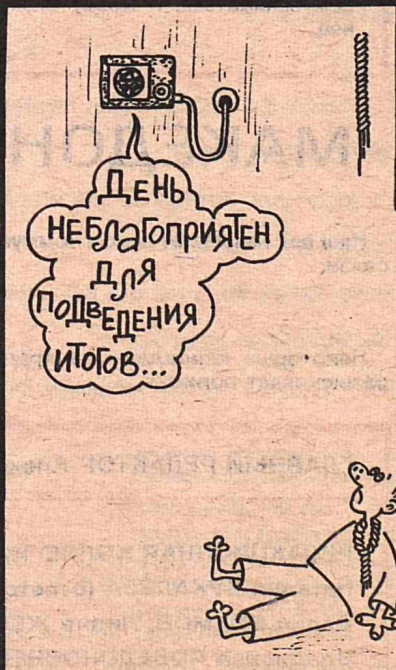 ДЕНЬ
НЕБЛАГОПРИЯТЕН
ДЛЯ
ПОДВЕДЕНИЯ
ИТОГОВ...